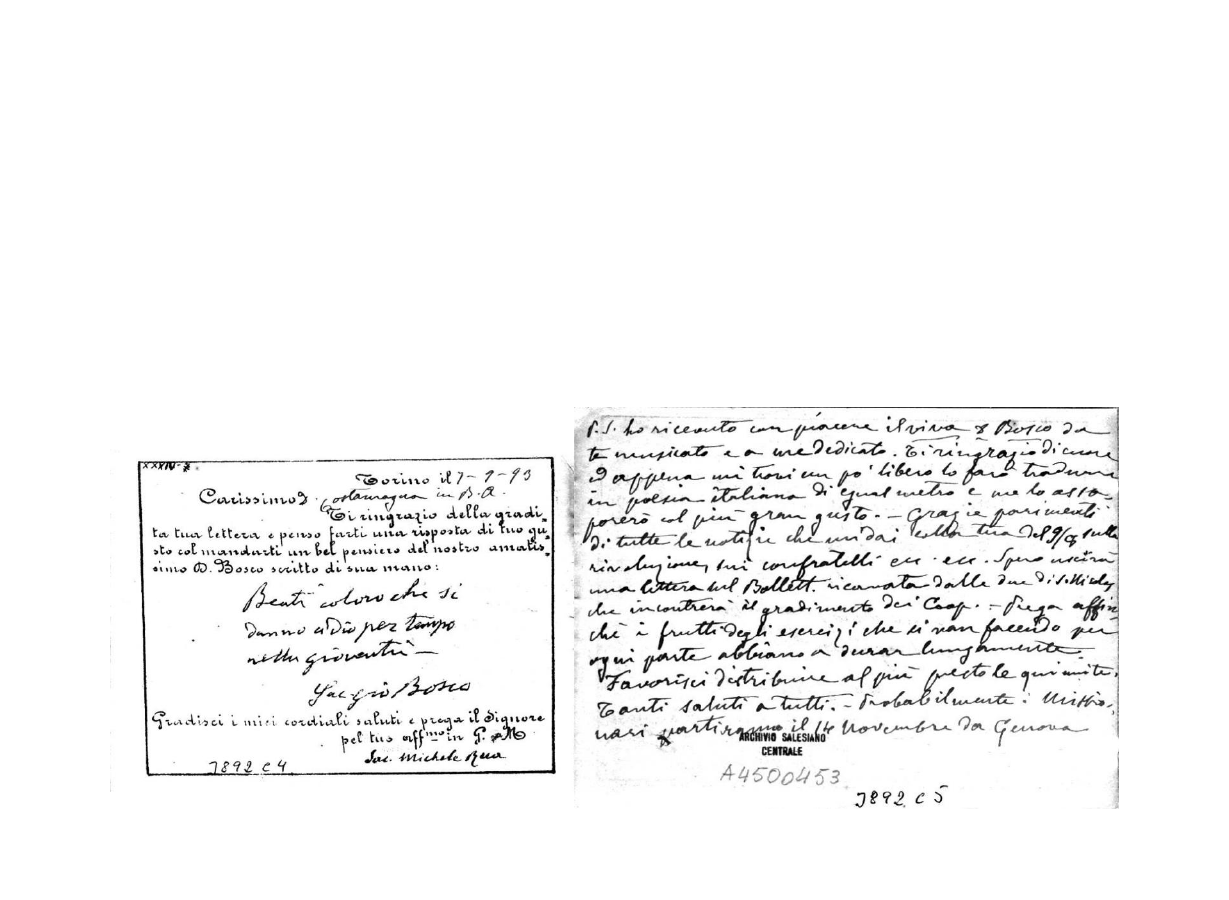 XXXIV-2.
Torino il 7-9-93
Carissimo D. Costamagna in B.A.
Ti ringrazio della gradi-
ta tua lettera e penso farti una risposta di tuo gu-
sto col mandarti un bel pensiero del nostro amatis-
simo D. Bosco scritto di sua mano:
Beati coloro che si
danno a Dio per tempo
nella gioventù –
Sac gio Bosco
Gradisci i miei cordiali saluti e prega il Signore
pel tuo affmo in G. e M
Sac. Michele Rua
3892 C 4
P.S. ho ricevuto con piacere il viva D Bosco da
te musicato e a me dedicato. Ti ringrazio di cuore
ed appena mi trovi un po' libero lo farò tradurre
in poesia italiana di egual metro e me lo asso-
porerò col più gran gusto. – Grazie parimenti
di tutte le notizie che mi dai colla tua del 9/8 sulla
rivoluzione, sui confratelli ecc. ecc. Spero uscirà
una lettera sul Bollett. ricavata dalle due di
che incontrerà il gradimento dei Coop. – Prega affin-
chè i frutti degli esercizi che si van facendo per
ogni parte abbiano a durar lungamente.
Favorisci distribuire al più presto le qui unite.
Tanti saluti a tutti. – Probabilmente i Missio-
nari partiranno il 14 Novembre da Genova
ARCHIVIO SALESIANO
CENTRALE
A4500453
3892 C 5